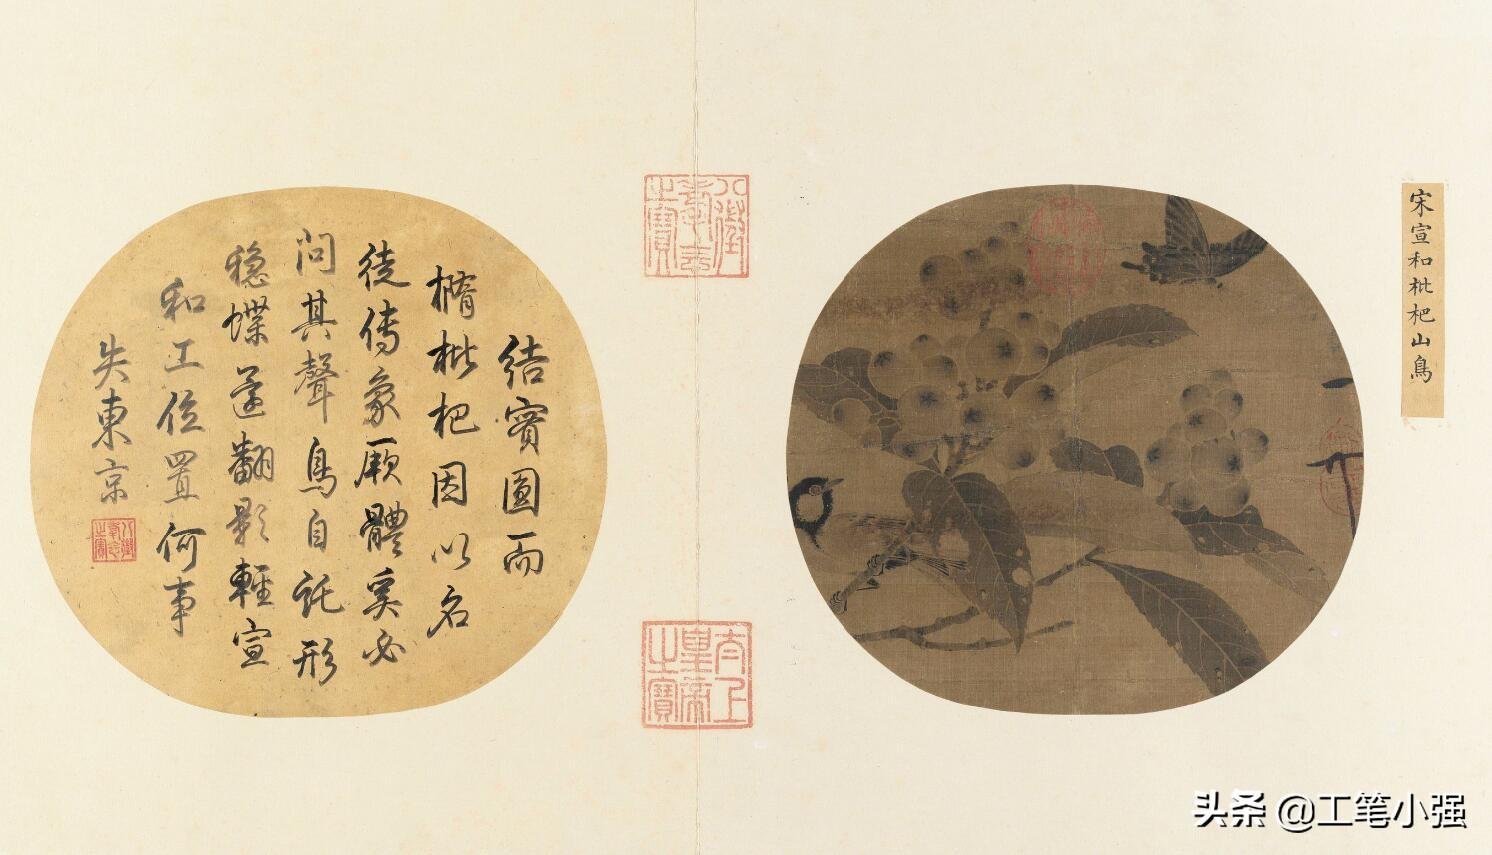 宋宣和枇杷山鳥
八徵耄念之寶
太上皇帝之寶
结實圓而
橢枇杷因以名
徒傳象厥體奚必
問其聲鳥自託形
穩蝶翻影輕宣
和工位置何事
失東京
八徵耄念之寶
头条 @工笔小强